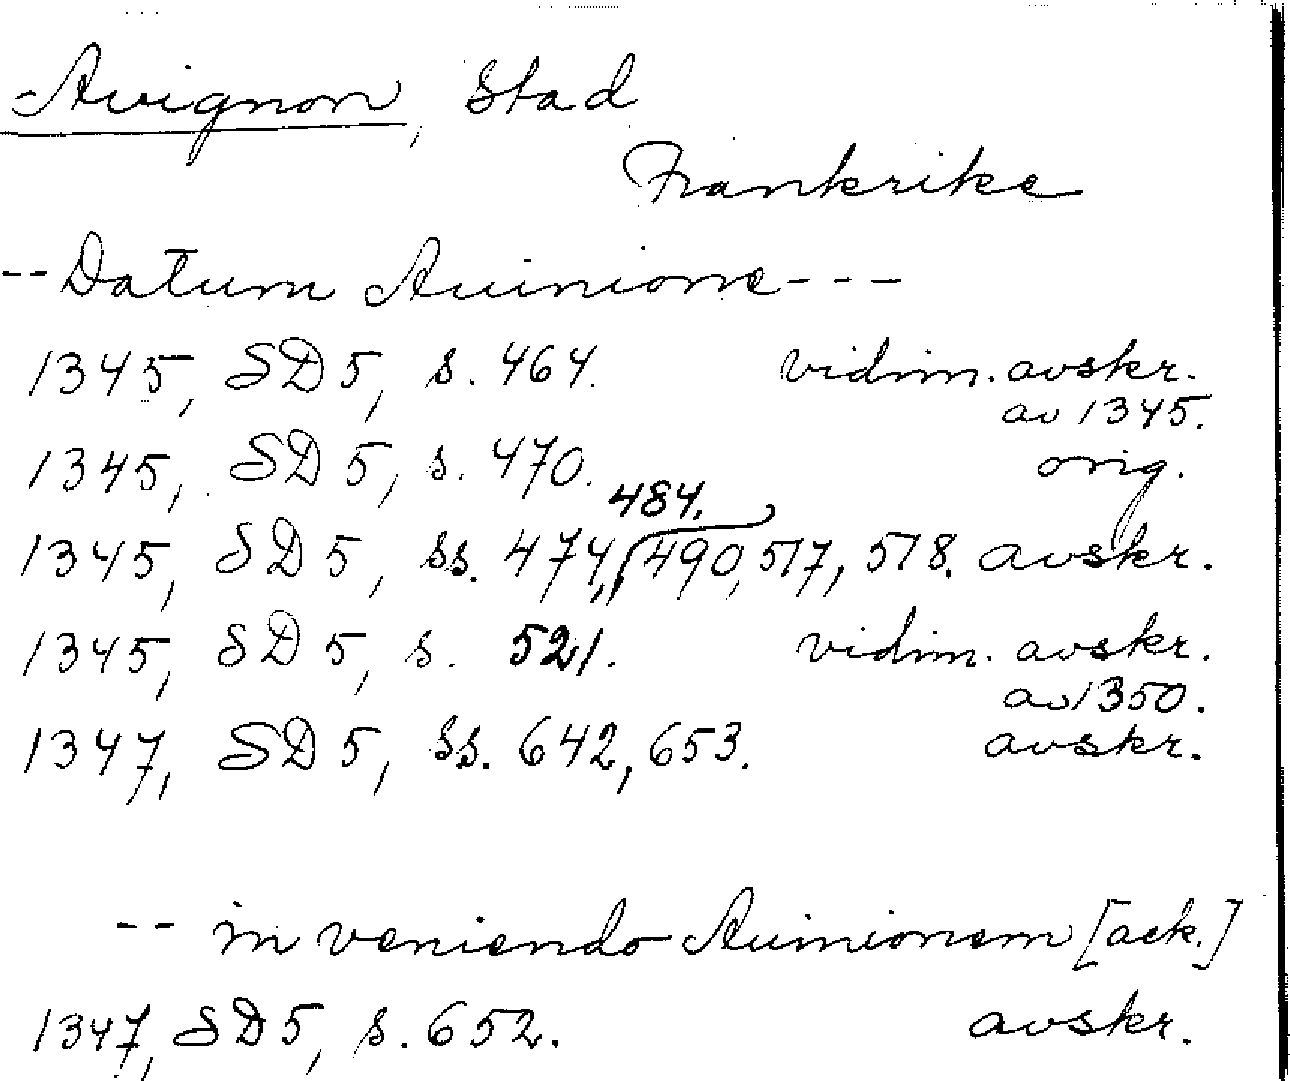 Avignon, Stad
Frankrike
-- Datum Auinione ---
1345, SD 5, s. 464. vidim. avskr.
av 1345.
1345, SD 5, s. 470. orig.
484.
1345, SD 5, ss. 474, 490, 517, 518. avskr.
1345, SD 5, s. 521. vidim. avskr.
av 1350.
1347, SD 5, ss. 642, 653. avskr.
-- in veniendo Auinionem [ack.]
1347, SD 5, s. 652. avskr.